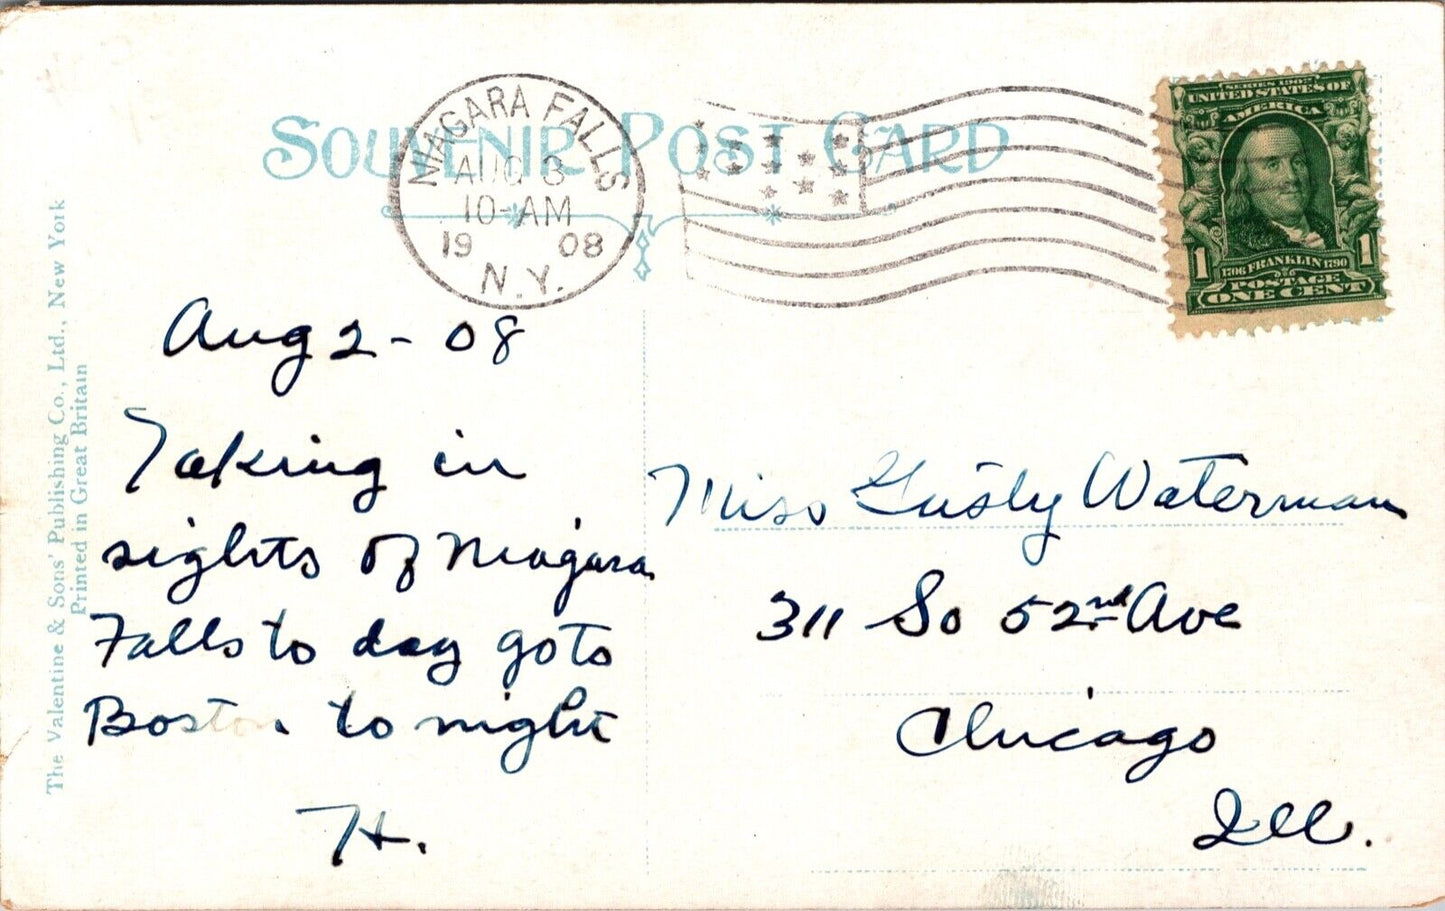 SOUVENIR POST CARD
NIAGARA FALLS
AUG 3
10-AM
1908
N.Y.
SERIES 1902
UNITED STATES OF
AMERICA
1706 FRANKLIN 1790
1 1
POSTAGE
ONE CENT
The Valentine & Sons' Publishing Co., Ltd., New York
Printed in Great Britain
Aug 2 - 08
Taking in
sights of Niagara
Falls to day go to
Boston. to night
H.
Miss Gusty Waterman
311 So 52nd Ave
Chicago
Ill.